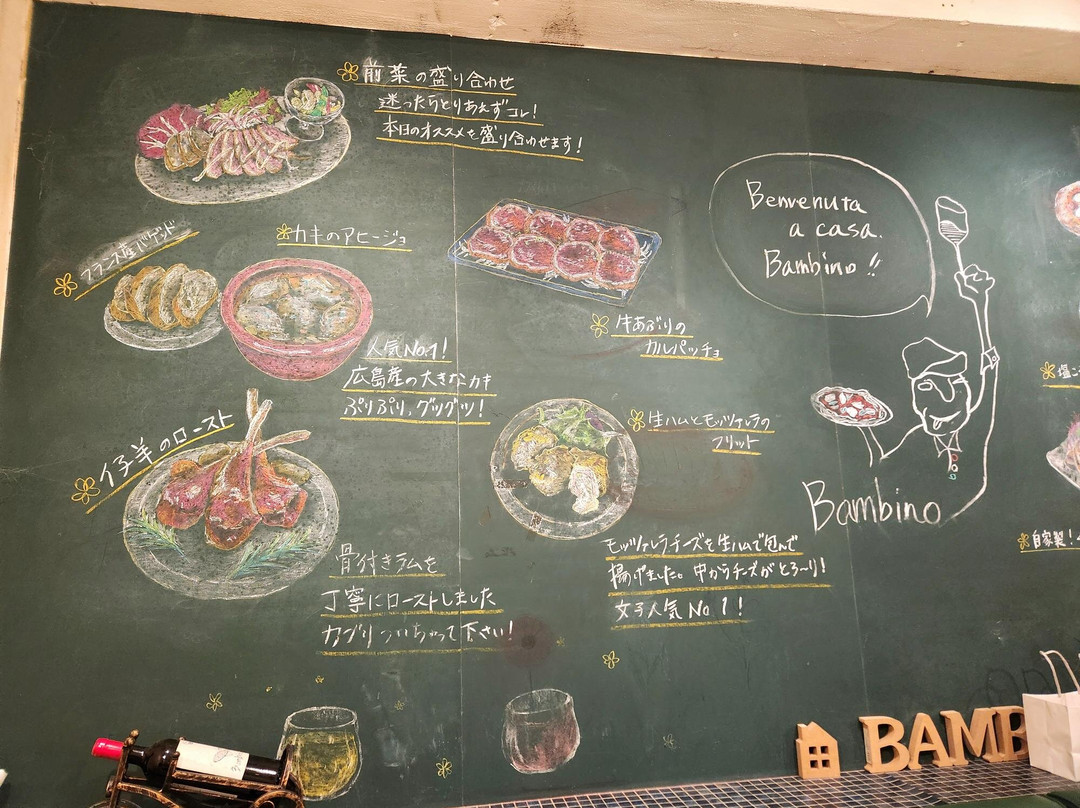 前菜の盛り合わせ
迷ったらとりあえずコレ！
本日のオススメを盛り合わせます！
フランス産バゲット
カキのアヒージョ
人気No.1！
広島産の大きなカキ
ぷりぷり、グツグツ！
牛あぶりの
カルパッチョ
仔羊のロースト
骨付きラムを
丁寧にローストしました
カブりついちゃって下さい！
生ハムとモッツァレラの
フリット
モッツァレラチーズを生ハムで包んで
揚げました。中からチーズがとろ〜り！
女子人気No1！
Benvenuta
a casa.
Bambino!!
Bambino
自家製！
BAMB